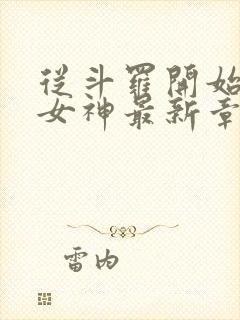 從斗羅開始
女神最新章
雷内